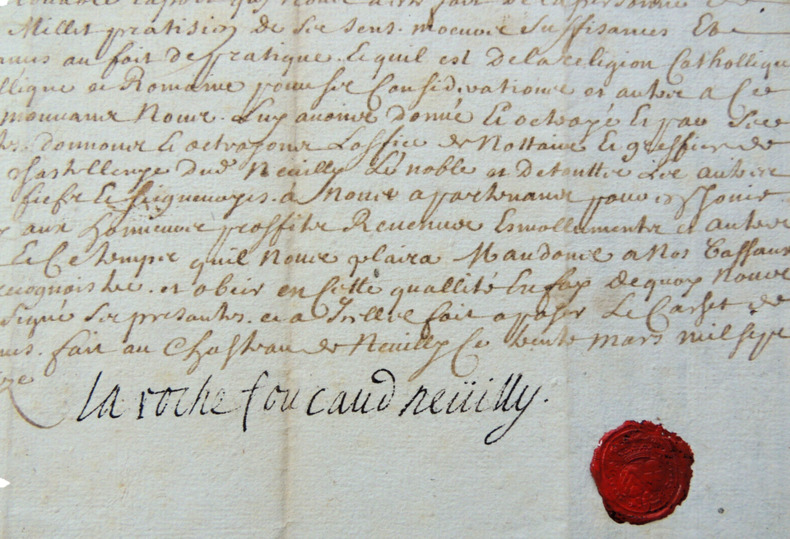 Millet pratisien de ses sens. moeurs suffisances Et
au fait de pratique. Et quil est de la religion Catholliqu
lique et Romaine pour ses Considerations et autres a Ce
mouuans Nous. Luy auons donné Et octroyé Et par Ses
donnons Et octroyons Loffice de Nottaire Et greffier de
Chastellenye dud. Neuilly Le noble et de touttes Les autres
fiefs Et seigneuryes. a Nous apartenans pour
aux honneurs proffits Reuenus Esmolluments et autres
Et Ce temps quil Nous plaira Mandons a Nos Vassaux
recognoistre. et obeir en Cette quallité En foy De quoy Nous
signé Ses presentes. et a Icelles fait aposer Le Casset de
fait au Chasteau de Neuilly Ce vinte mars mil sept
la roche foucaud neüilly.